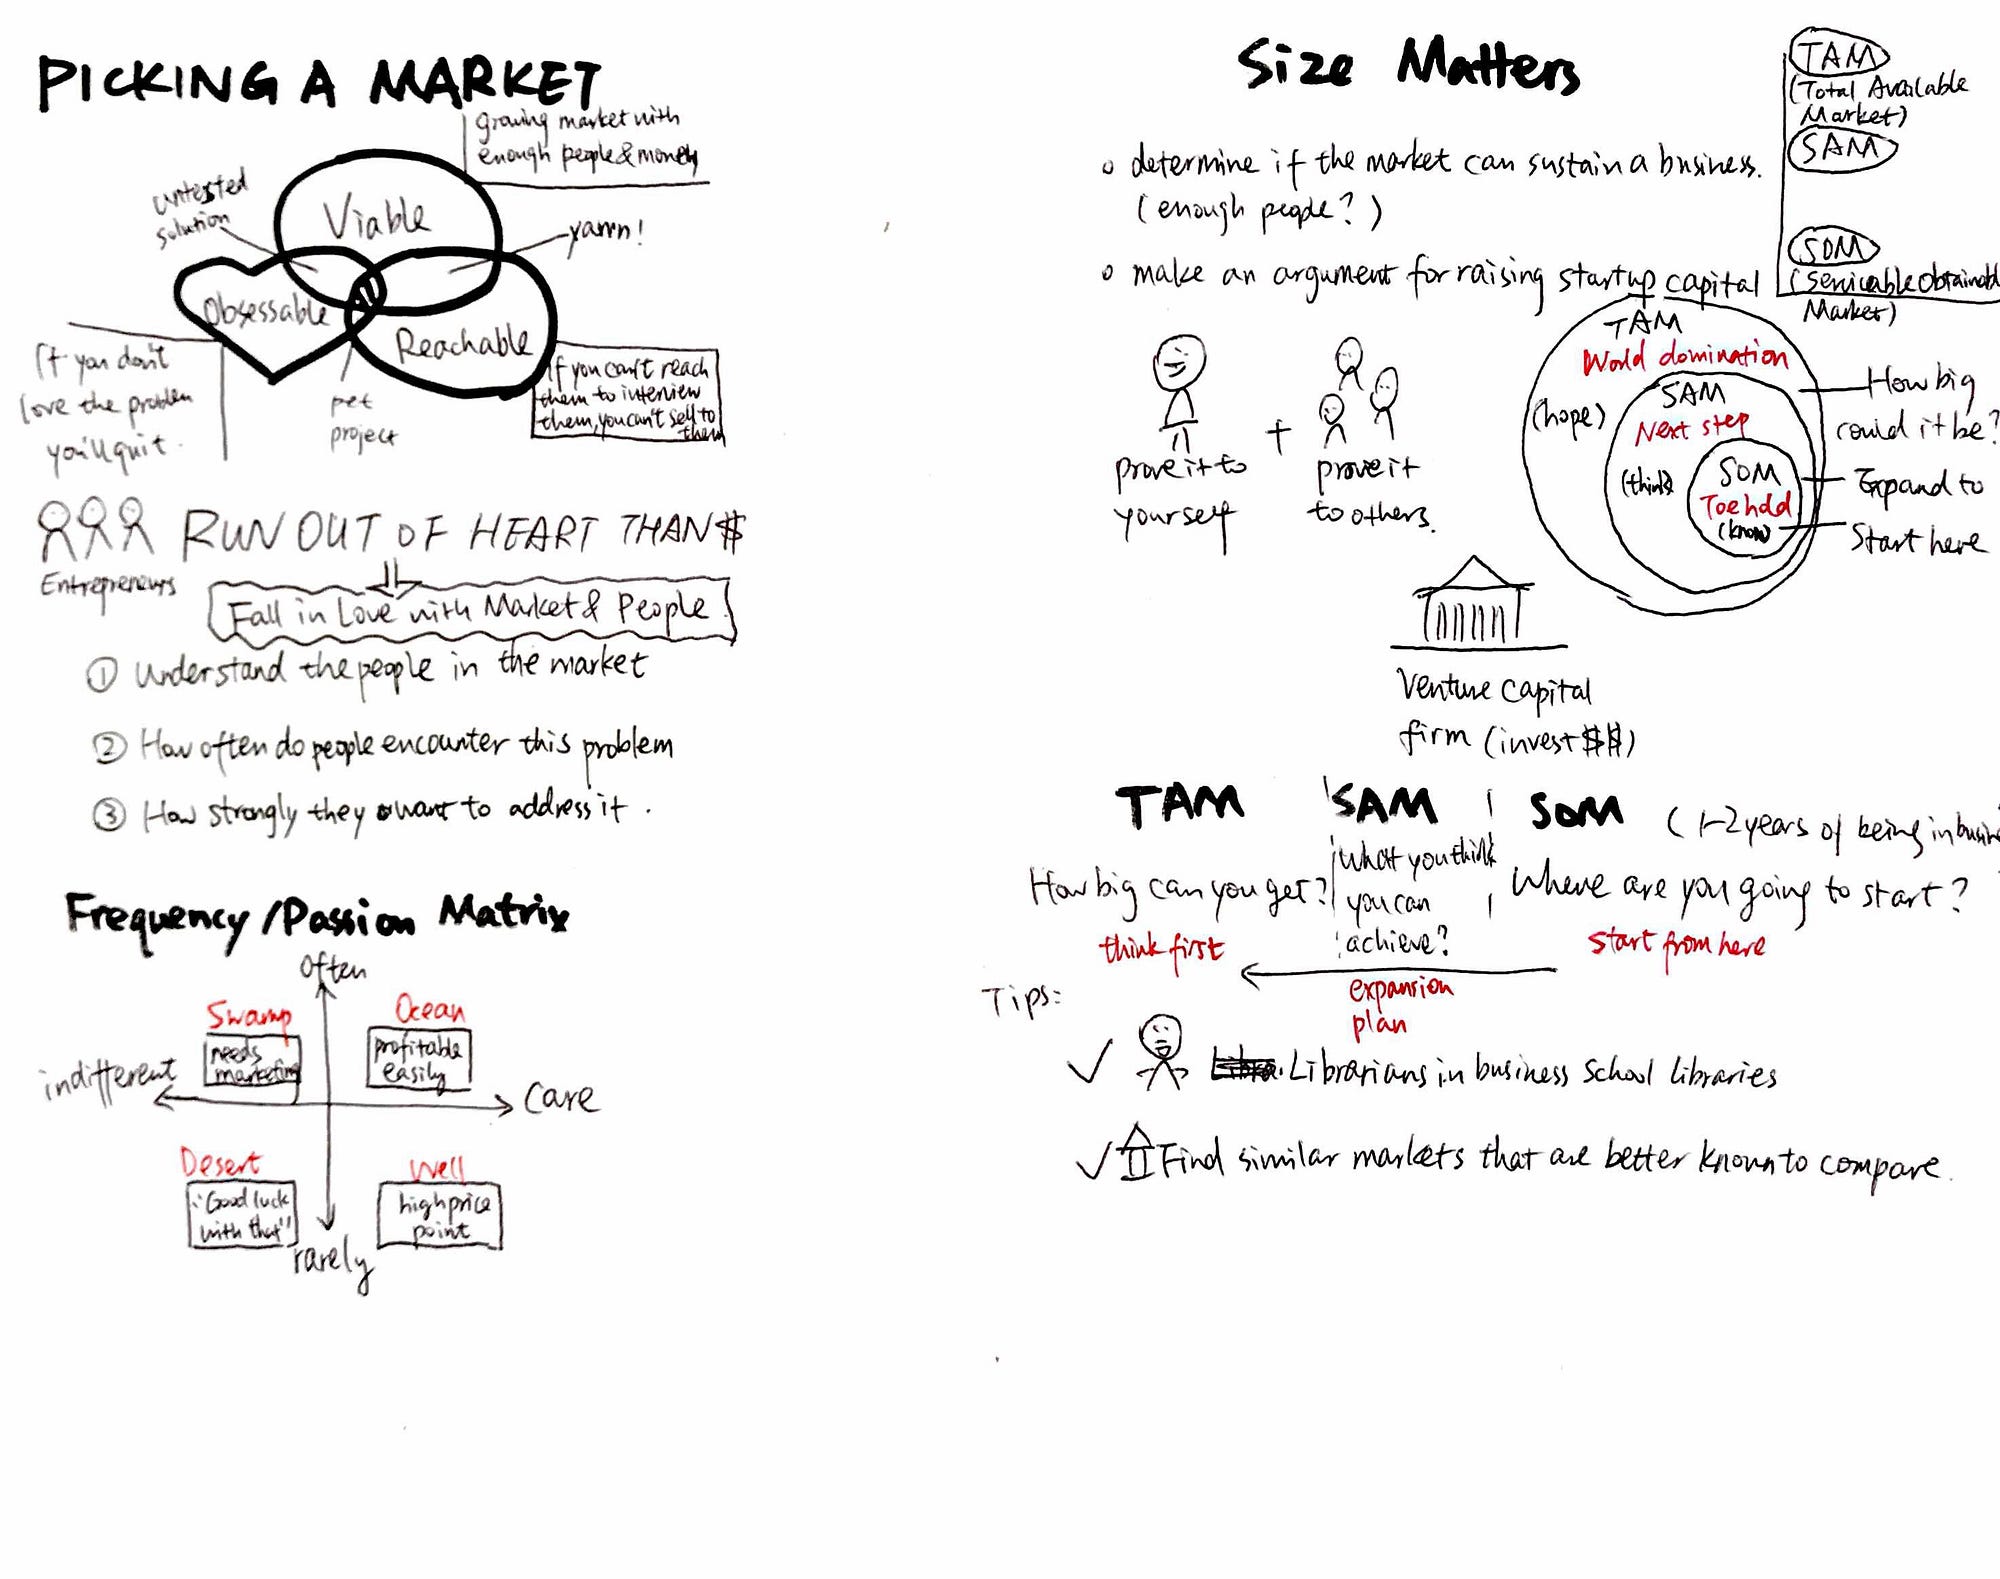 PICKING A MARKET
growing market with
enough people & money
untested
solution
Viable
yawn!
Obsessable
Reachable
If you don't
love the problem
you'll quit.
pet
project
If you can't reach
them to interview
them, you can't sell to
them
Entrepreneurs
RUN OUT OF HEART THAN $
Fall in Love with Market & People.
① Understand the people in the market
② How often do people encounter this problem
③ How strongly they want to address it.
Frequency/Passion Matrix
Often
Swamp
needs
marketing
Ocean
profitable
easily
indifferent
Care
Desert
"Good luck
with that"
Well
high price
point
rarely
Size Matters
TAM
(Total Available
Market)
SAM
SOM
(Servicable Obtainabl
Market)
determine if the market can sustain a business.
(enough people?)
make an argument for raising startup capital
prove it to
yourself
+
prove it
to others.
TAM
World domination
(hope)
SAM
Next step
(think
SOM
Toehold
(know
How big
could it be?
Expand to
Start here
Venture Capital
firm (invest $$)
TAM
How big can you get?
think first
SAM
What you think
you can
achieve?
SOM (1-2 years of being in busin
Where are you going to start?
start from here
expansion
plan
Tips:
Librarians in business school libraries
Find similar markets that are better known to compare.